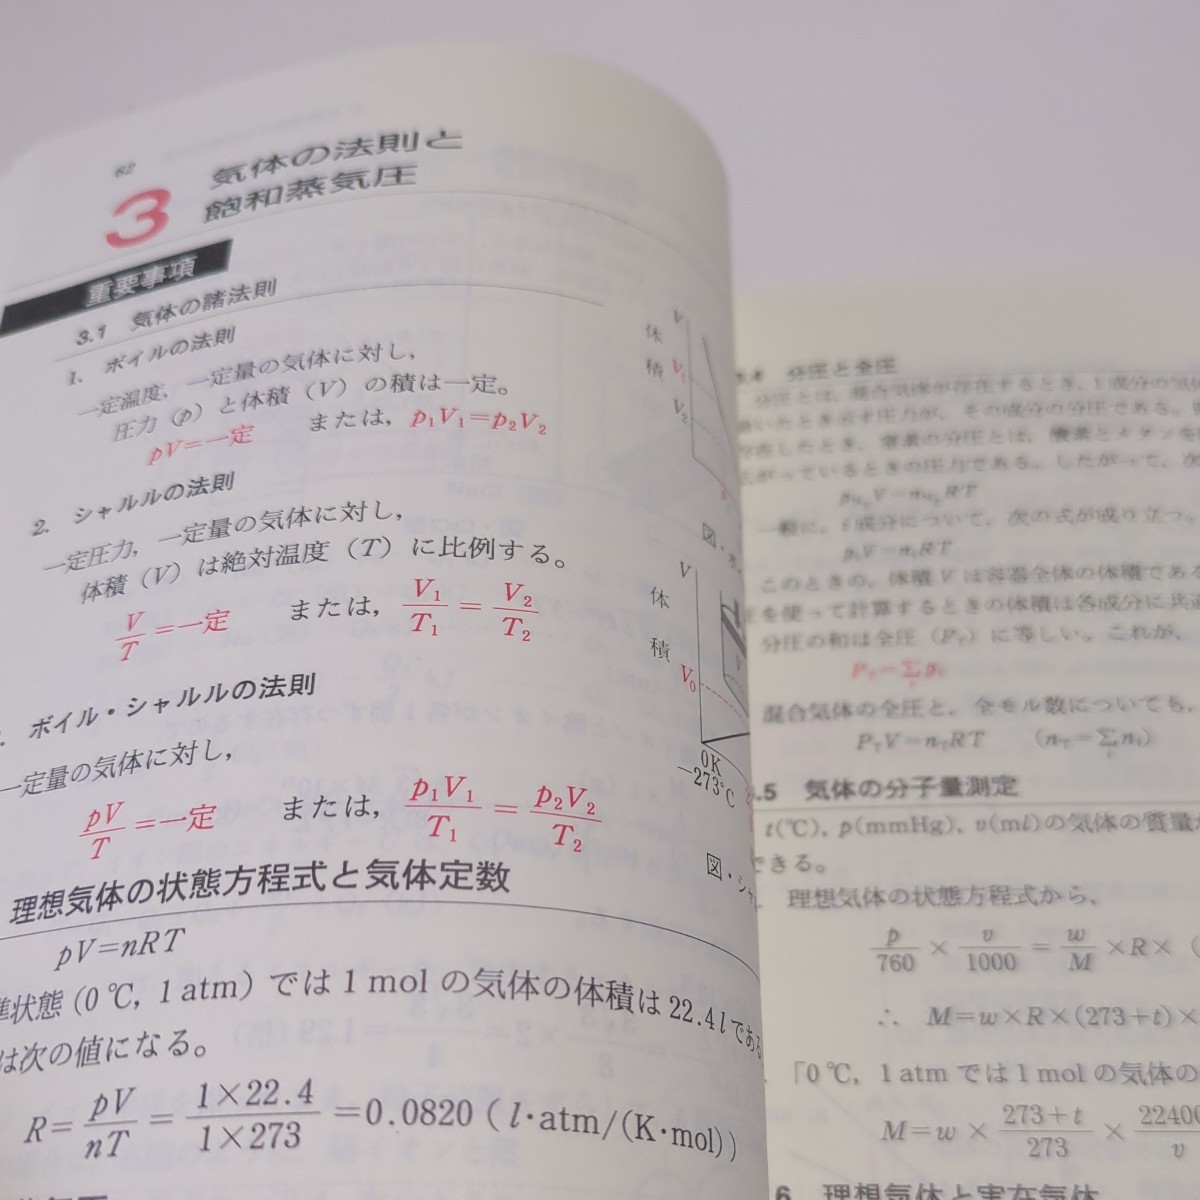 62
3
気体の法則と
飽和蒸気圧
重要事項
3.1 気体の諸法則
1. ボイルの法則
一定温度、一定量の気体に対し，
圧力（p）と体積（V）の積は一定。
pV＝一定 または，p₁V₁＝p₂V₂
2. シャルルの法則
一定圧力，一定量の気体に対し，
体積（V）は絶対温度（T）に比例する。
V/T＝一定 または，V₁/T₁＝V₂/T₂
ボイル・シャルルの法則
一定量の気体に対し，
pV/T＝一定 または，p₁V₁/T₁＝p₂V₂/T₂
理想気体の状態方程式と気体定数
pV＝nRT
準状態（0℃，1atm）では1molの気体の体積は22.4lである
は次の値になる。
R＝pV/nT＝1×22.4/1×273＝0.0820（l・atm/(K・mol)）
V
体
積
V₁
V₂
図・
V
体
積
V
V₀
0K
−273℃
図・シャ
3.4 分圧と全圧
分圧とは，混合気体が存在するとき，i成分の気体
いたとき示す圧力が，その成分の分圧である。
存在したとき，窒素の分圧とは，酸素とメタンを
がっているときの圧力である。したがって，次
V＝RT
一般に，i成分について，次の式が成り立つ。
pᵢV＝nᵢRT
このときの，体積Vは容器全体の体積である
圧を使って計算するときの体積は各成分に共通
分圧の和は全圧（P_T）に等しい。これが，
P_T＝Σpᵢ
混合気体の全圧と，全モル数についても，
P_TV＝n_TRT （n_T＝Σnᵢ）
.5 気体の分子量測定
t(℃)，p(mmHg)，v(ml)の気体の質量
できる。
理想気体の状態方程式から，
p/760×v/1000＝w/M×R×（
∴ M＝w×R×(273＋t)×
「0℃，1atmでは1molの気体の
M＝w×273＋t/273×22400/v
6 理想気体と実在気体